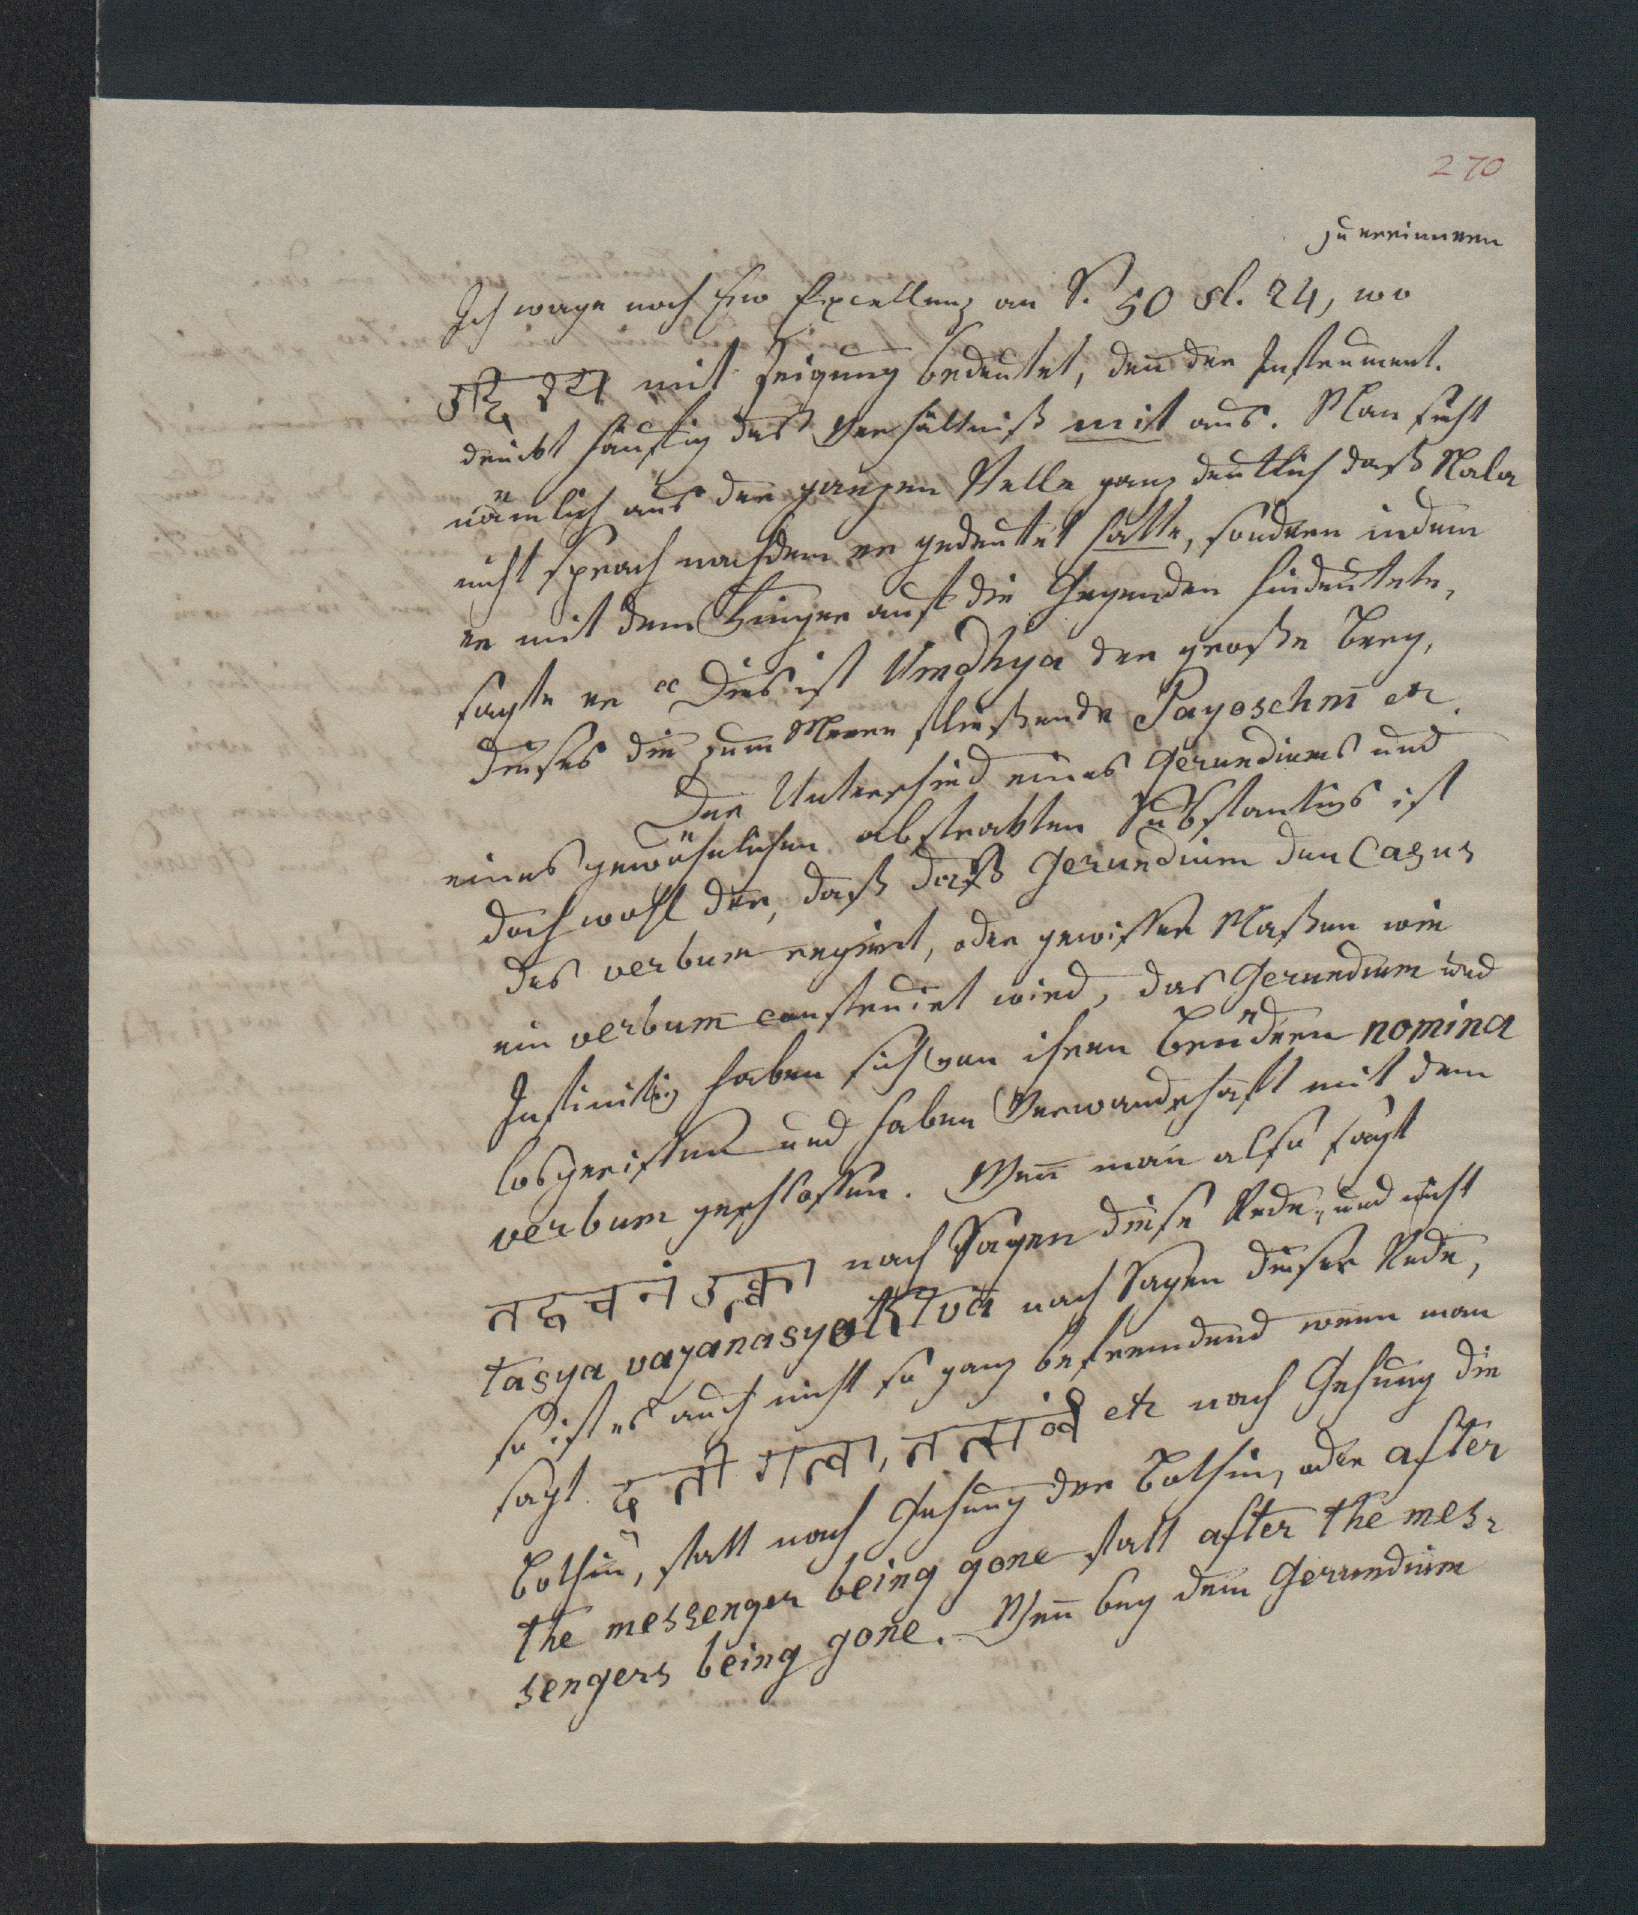 270
zu erinnern
Ich wage noch Ew Excellenz an S. 50 sl. 24, wo
उद्दिश्य mit Zeigung bedeutet, deñ der Instrument.
drückt häufig das Verhältniß mit aus. Man sieht
nämlich aus der ganzen Stelle ganz deutlich daß Nala
nicht sprach nachdem er gedeutet hatte, sondern indem
er mit dem Finger auf die Gegenden hindeutete,
sagte er "Dies ist Vindhya der große Berg,
dieses die zum Meere fließende Payoschnī etc.
Der Unterschied eines Gerundiums und
eines gewöhnlichen abstrakten Substantivs ist
doch wohl der, daß das Gerundium den Casus
des verbum regiert, oder gewisser Maßen wie
ein verbum construirt wird, das Gerundium und
Infinitiv haben sich von ihren Brüdern nomina
losgerissen und haben Verwandschaft mit dem
verbum geschlossen. Weñ man also sagt
तद्वचनं उक्त्वा nach Sagen diese Rede, und nicht
tasya vaʒanasyoktvā nach Sagen dieser Rede,
so ist es auch nicht so ganz befremdend wenn man
sagt दूती गत्वा, etc nach Gehung die
Bothin, statt nach Gehung der Bothin, oder after
the messenger being gone statt after the mes-
sengers being gone. Weñ bey dem Gerundium